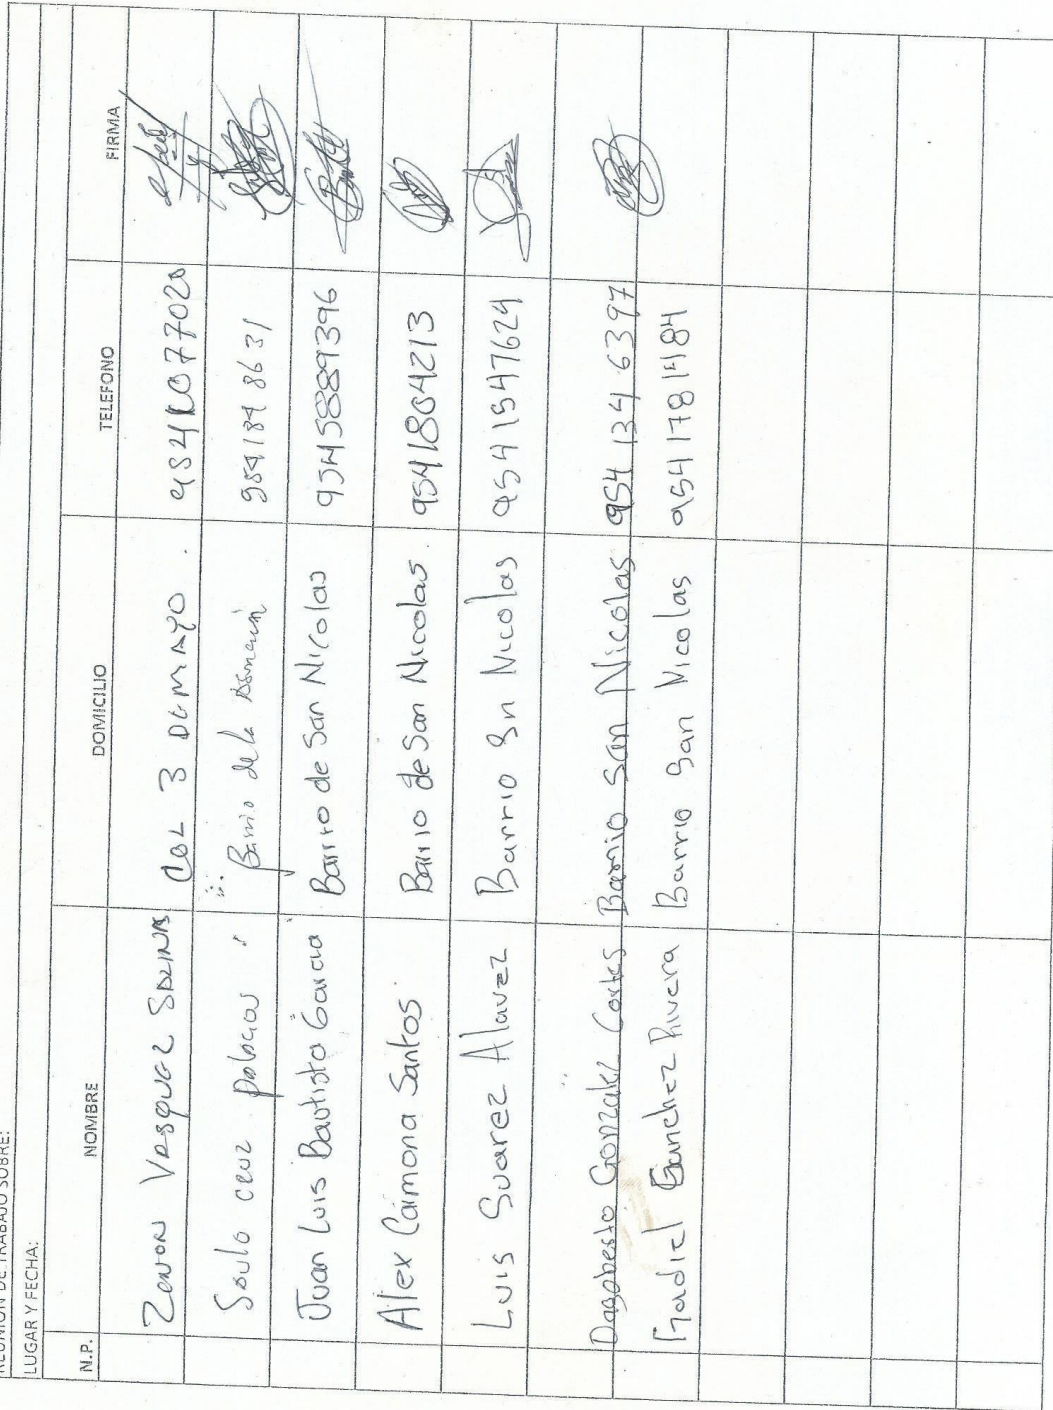 REUNION DE TRABAJO SOBRE:
LUGAR Y FECHA:
N.P. NOMBRE DOMICILIO TELEFONO FIRMA
ZENON VASQUEZ SALINAS COL 3 DE MAYO.
Saulo cruz palacios Barrio de la 954 184 86 31
Juan Luis Bautista Garcia Barrio de San Nicolas 9545889396
Alex Carmona Santos Barrio de San Nicolas. 9541804213
Luis Suarez Alavez Barrio Sn Nicolas 9541547624
Dagoberto Gonzalez Cortes Barrio San Nicolas 954 134 6397
Gadiel Sanchez Rivera Barrio San Nicolas 9541781484